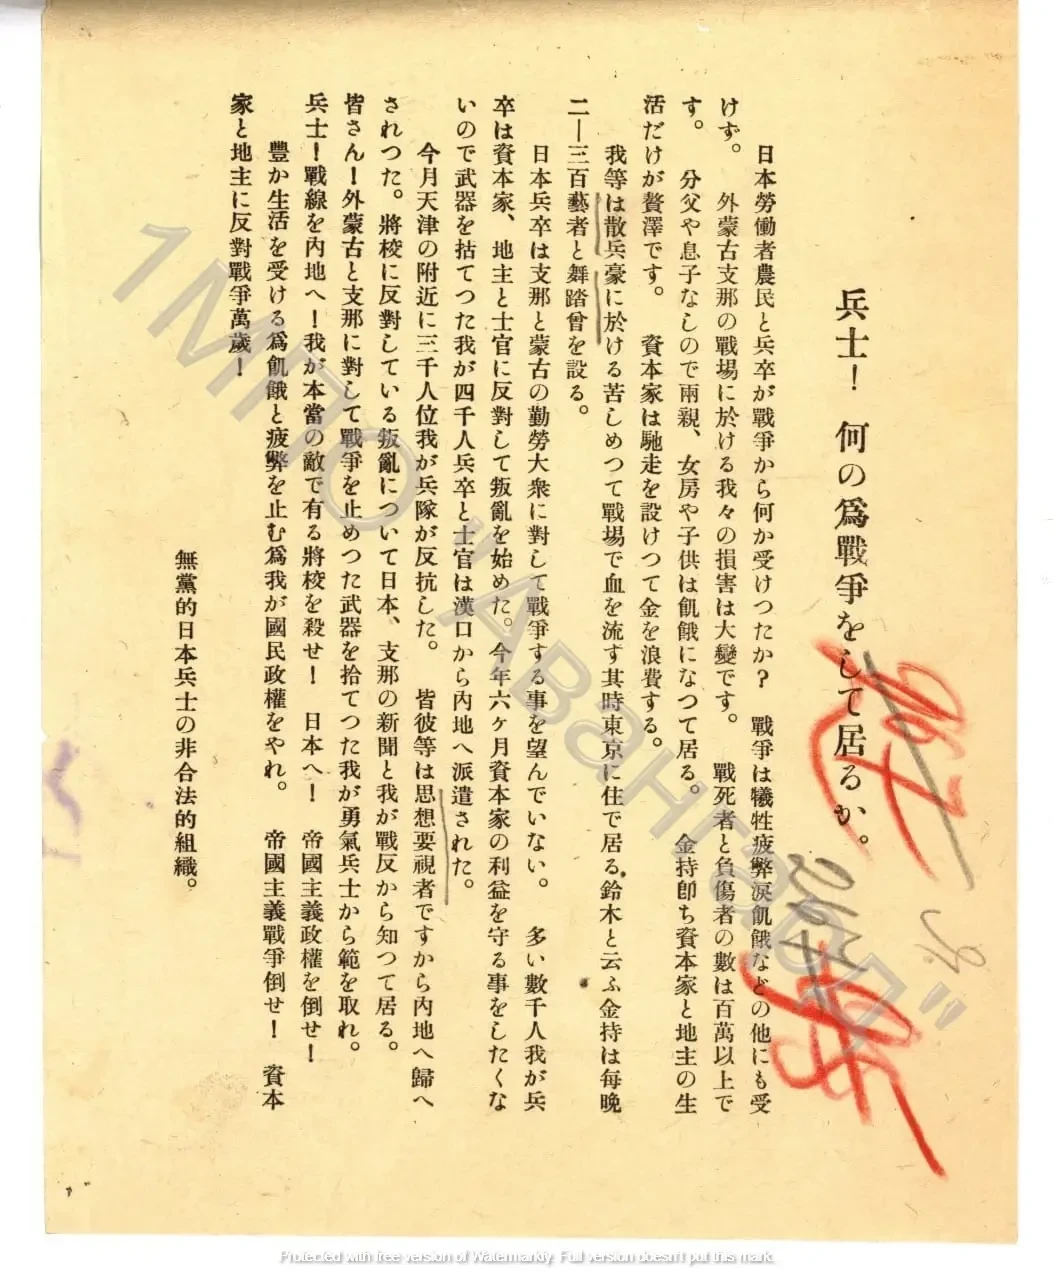 兵士！ 何の爲戰爭をして居るか。
日本勞働者農民と兵卒が戰爭から何か受けつたか？ 戰爭は犧牲疲弊淚飢餓などの他にも受
けず。 外蒙古支那の戰場に於ける我々の損害は大變です。 戰死者と負傷者の數は百萬以上で
す。 分父や息子なしので兩親、女房や子供は飢餓になつて居る。 金持卽ち資本家と地主の生
活だけが贅澤です。 資本家は馳走を設けつて金を浪費する。
我等は散兵豪に於ける苦しめつて戰場で血を流す其時東京に住で居る鈴木と云ふ金持は每晚
二―三百藝者と舞踏曾を設る。
日本兵卒は支那と蒙古の勤勞大衆に對して戰爭する事を望んでいない。 多い數千人我が兵
卒は資本家、地主と士官に反對して叛亂を始めた。今年六ヶ月資本家の利益を守る事をしたくな
いので武器を拈てつた我が四千人兵卒と士官は漢口から內地へ派遣された。
今月天津の附近に三千人位我が兵隊が反抗した。 皆彼等は思想要視者ですから內地へ歸へ
されつた。將校に反對している叛亂について日本、支那の新聞と我が戰反から知つて居る。
皆さん！外蒙古と支那に對して戰爭を止めつた武器を拾てつた我が勇氣兵士から範を取れ。
兵士！戰線を內地へ！我が本當の敵で有る將校を殺せ！ 日本へ！ 帝國主義政權を倒せ！
豐か生活を受ける爲飢餓と疲弊を止む爲我が國民政權をやれ。 帝國主義戰爭倒せ！ 資本
家と地主に反對戰爭萬歲！
無黨的日本兵士の非合法的組織。
1МПО "Авангард"
Protected with free version of Watermarkly. Full version doesn't put this mark.